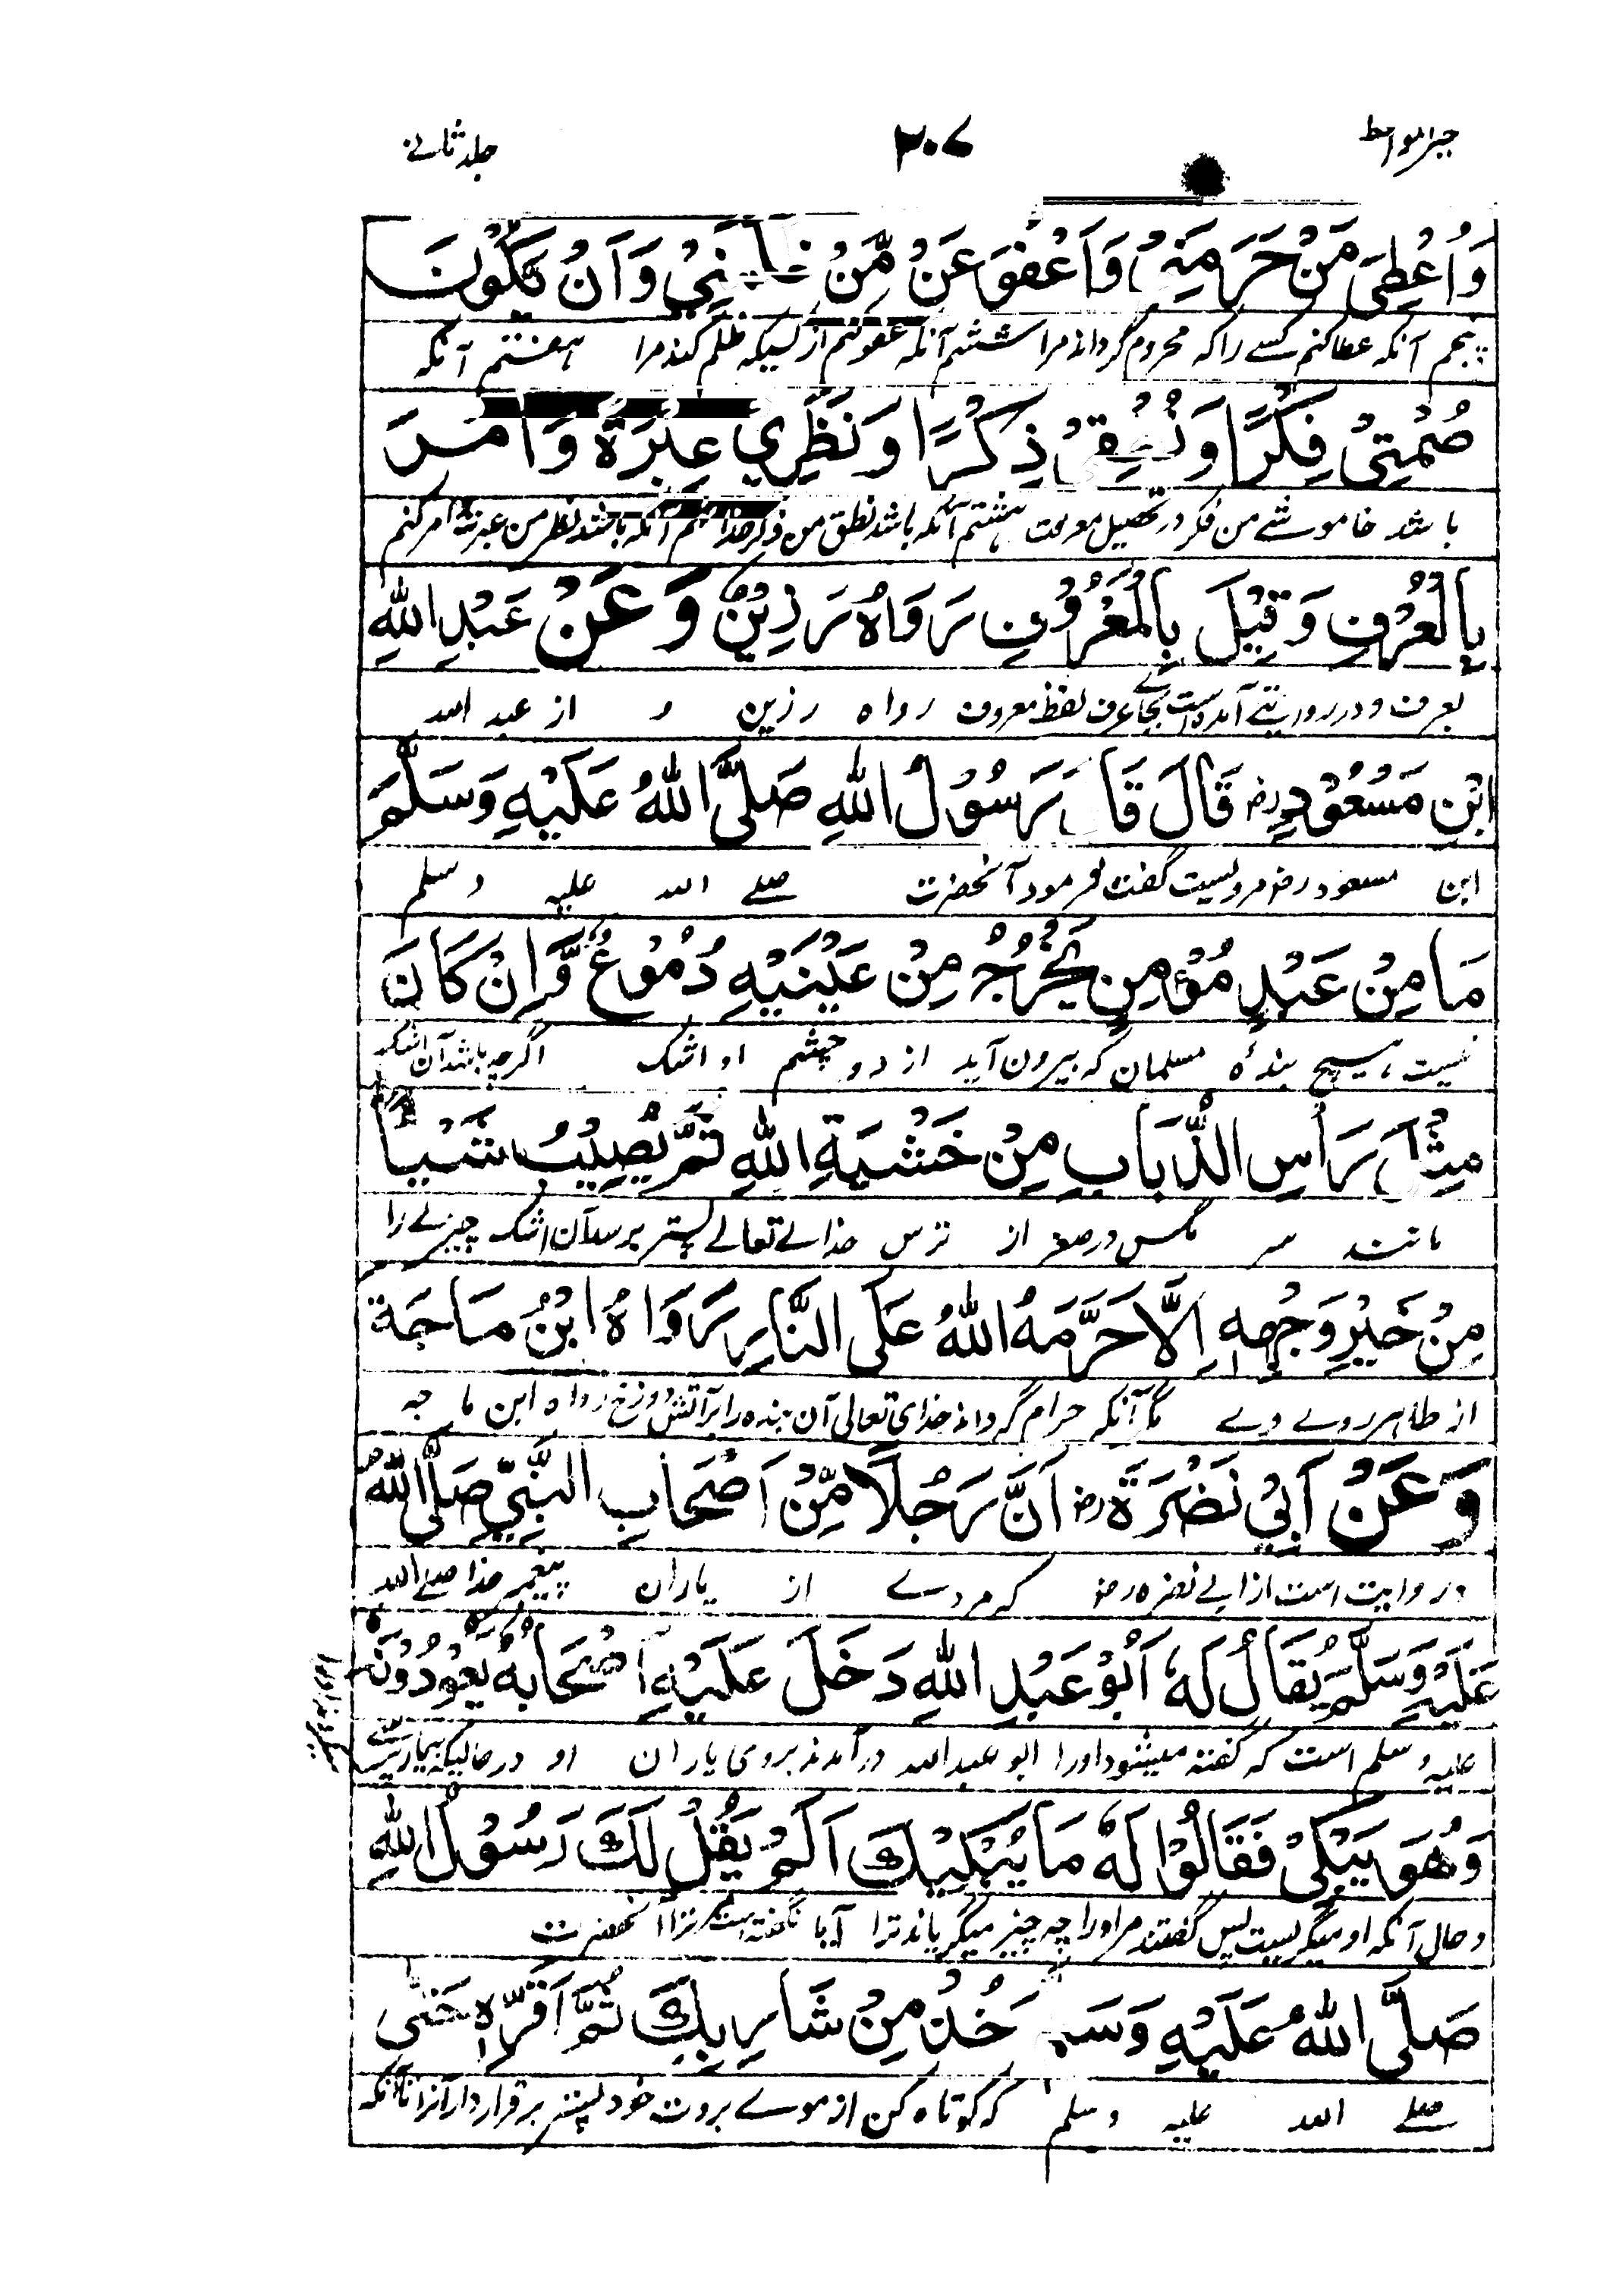 خیر المواعظ ۲۰۷ جلد ثانے
وَاُعْطِیَ مَنْ حَرَمَنِیْ وَاَعْفُوَ عَنْ مَّنْ ظَلَمَنِیْ وَاَنْ یَّکُوْنَ
پنجم آنکہ عطا کنم کسے را کہ محروم گرداند مرا ششم آنکہ عفو کنم از کسیکہ ظلم کند مرا ہفتم آنکہ
صُمْتِیْ فِکْرًا وَنُطْقِیْ ذِکْرًا وَنَظَرِیْ عِبْرَةً وَاٰمُرَ
باشد خاموشے من فکر در تحصیل معرفت ہشتم آنکہ باشد نطق من ذکر خدا نہم آنکہ باشد نظر من عبرت امر کنم
بِالْعُرْفِ وَقِیْلَ بِالْمَعْرُوْفِ رَوَاهُ رَزِیْنٌ وَعَنْ عَبْدِ اللهِ
بعرف و در روایتے آمدہ است بجاے عرف لفظ معروف رواہ رزین و از عبد اللہ
ابْنِ مَسْعُوْدٍ رض قَالَ قَالَ رَسُوْلُ اللهِ صَلَّی اللهُ عَلَیْهِ وَسَلَّمَ
ابن مسعود رض مرویست گفت فرمود آنحضرت صلے اللہ علیہ وسلم
مَا مِنْ عَبْدٍ مُؤْمِنٍ یَخْرُجُ مِنْ عَیْنَیْهِ دُمُوْعٌ وَّاِنْ کَانَ
نیست ہیچ بندۂ مسلمان کہ بیرون آید از دو چشم او اشک اگرچہ باشد آن اشک
مِثْلَ رَأْسِ الذُّبَابِ مِنْ خَشْیَةِ اللهِ ثُمَّ یُصِیْبُ شَیْئًا
مانند سر مگس در صغر از ترس خداے تعالے پستر برسد آن اشک چیزے را
مِنْ حَیِّرِ وَجْهِهٖ اِلَّا حَرَّمَهُ اللهُ عَلَی النَّارِ رَوَاهُ ابْنُ مَاجَة
از ظاہر روے وے مگر آنکہ حرام گرداند خدای تعالی آن بندہ را بر آتش دوزخ رواہ ابن ماجہ
وَعَنْ اَبِیْ نَضْرَةَ رض اَنَّ رَجُلًا مِّنْ اَصْحَابِ النَّبِیِّ صَلَّی اللهُ
در روایت است از ابے نضرہ رض کہ مردے از یاران پیغمبر خدا صلے اللہ
عَلَیْهِ وَسَلَّمَ یُقَالُ لَهٗ اَبُوْ عَبْدِ اللهِ دَخَلَ عَلَیْهِ اَصْحَابُهٗ یَعُوْدُوْنَهٗ
علیہ وسلم است کہ گفتہ میشود اورا ابو عبد اللہ درآمدند بروی یاران او در حالیکہ بیمار پرسی
وَهُوَ یَبْکِیْ فَقَالُوْا لَهٗ مَا یُبْکِیْكَ اَلَمْ یَقُلْ لَكَ رَسُوْلُ اللهِ
و حال آنکہ او میگریست پس گفتند مر اورا چہ چیز میگریاند ترا آیا نگفتہ است ترا آنحضرت
صَلَّی اللهُ عَلَیْهِ وَسَلَّمَ خُذْ مِنْ شَارِبِكَ ثُمَّ اَقِرَّهٗ حَتّٰی
صلے اللہ علیہ وسلم کہ کوتاہ کن از موے بروت خود پستر برقرار دار آنرا تا آنکہ